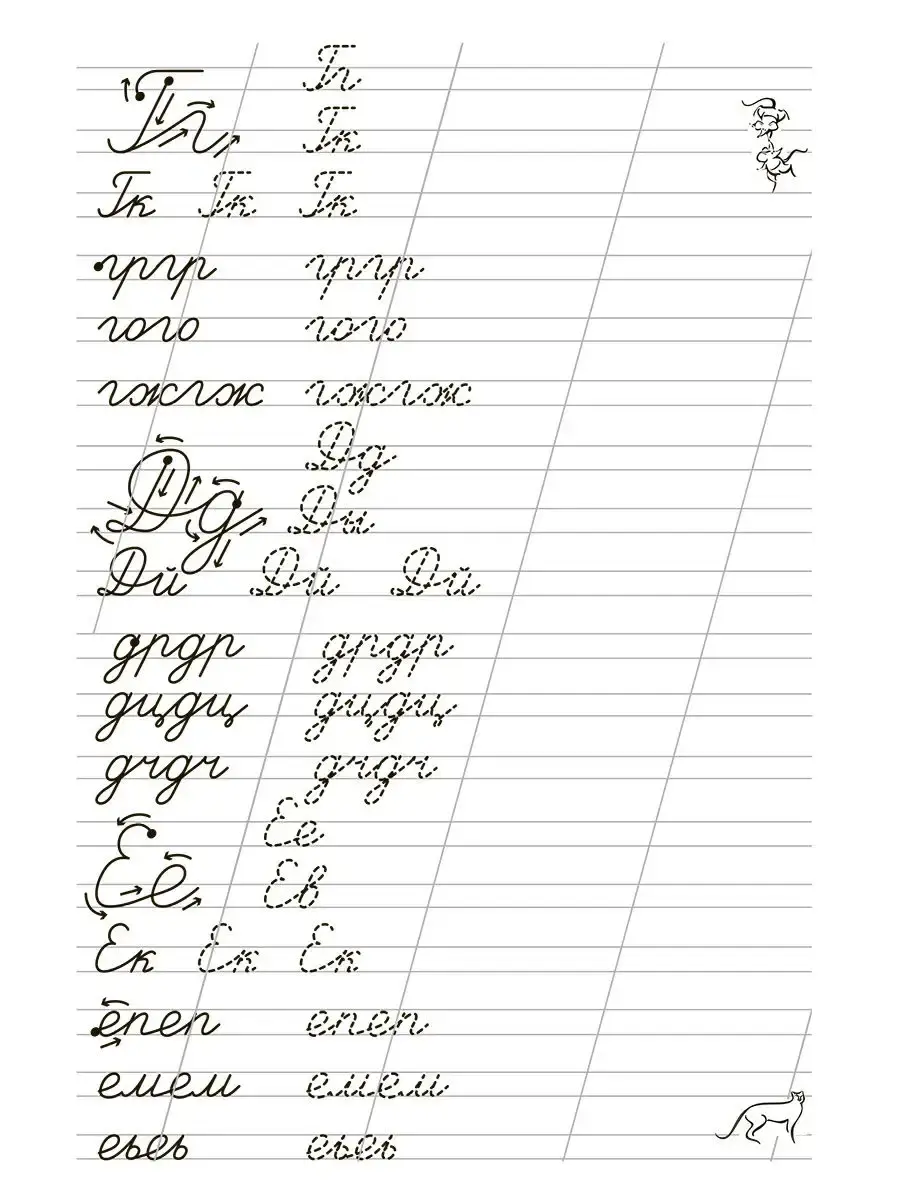 Гг
Гг Гк
Гк Гк Гк
гргр гргр
гого гого
гжгж гжгж
Дд
Дд Ди
Дй Дй Дй
дрдр дрдр
дцдц дцдц
дчдч дчдч
Ее
Ее Ев
Ек Ек Ек
епеп епеп
емем емем
еьеь еьеь